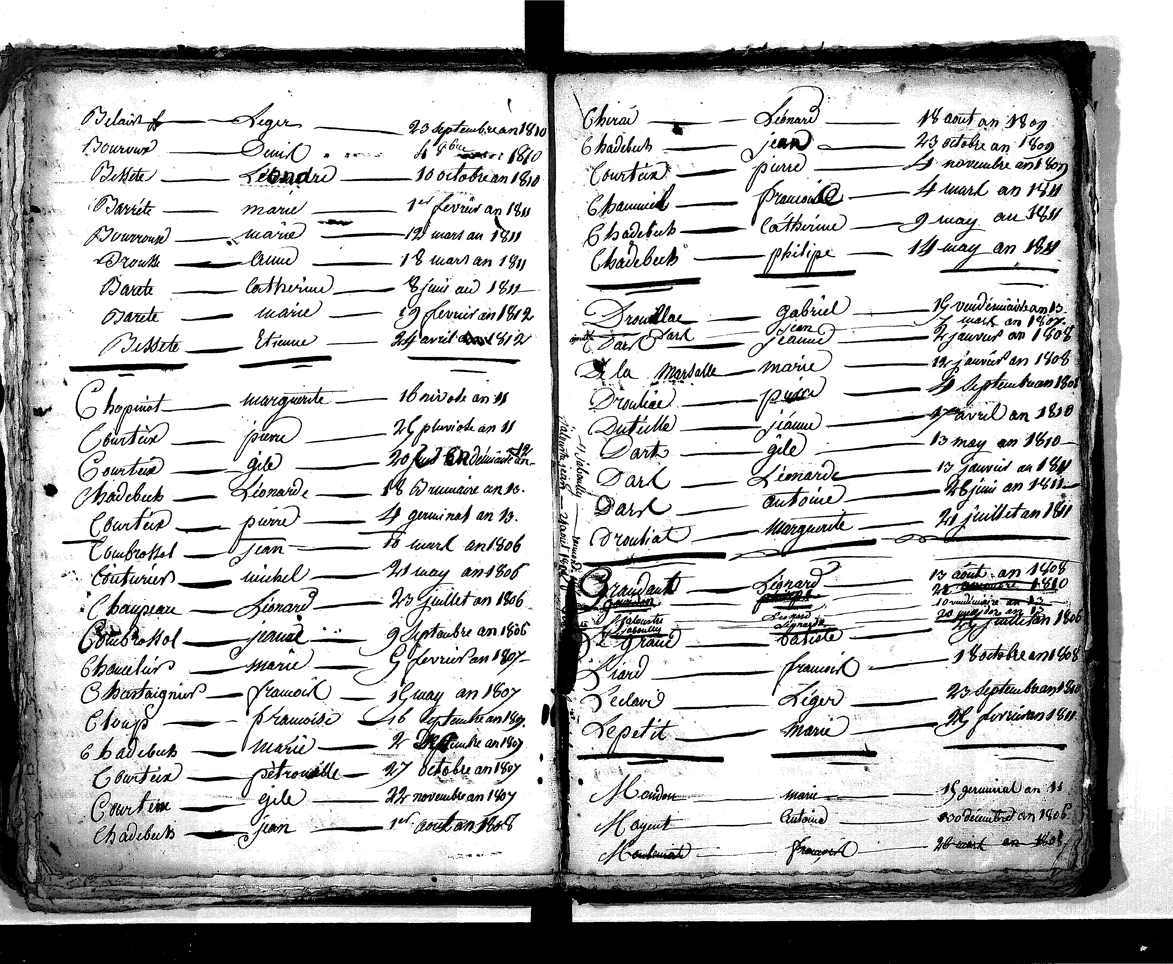 Belair Leger 23 septembre an 1810
Bouroux Denis 4 9bre 1810
Bessete Léondre 10 octobre an 1810
Barréte marie 1er fevrier an 1811
Bourroux marie 12 mars an 1811
anne 18 mars an 1811
Barete Catherine 8 juin an 1811
Barete marie 19 fevrier an 1812
Bessete Etienne 24 avril 1812
Chopinot marguerite 16 nivose an 11
Courteix pierre 26 pluviose an 11
Courteix gile 20 vendémiaire an 12
Chadebech Léonarde 18 Brumaire an 13.
Courteix pierre 4 germinal an 13.
Combrossol jean 10 mars an 1806
Couturier michel 21 may an 1806
Chaupeau Léonard 23 juillet an 1806
Combrossol 9 septembre an 1806
marie 9 fevrier an 1807
Chastaignier francois 15 may an 1807
Cloup francoise 16 septembre an 1807
Chadebech marie 2 an 1807
Courteix pétronille 27 octobre an 1807
Courteix gile 22 novembre an 1807
Chadebech jean 1er aout an 1808
Chirac Léonard 18 aout an 1809
Chadebech jean 23 octobre an 1809
Courteix pierre 4 novembre an 1809
francois 4 mars an 1811
Chadebech Cathérine 9 may an 1811
Chadebech philipe 14 may an 1811
Drouillac gabriel 15 vendémiaire an 13
Dart jean mars an 1807
Dart jeanne 2 janvier an 1808
De la Marsalle marie 12 janvier an 1808
Drouliac pierre 4 septembre an 1808
Duteille jéanne 17 avril an 1810
Dart gile 13 may an 1810
Dart Léonarde 13 janvier an 1811
Dart antoine 26 juin an 1811
Drouliat marguerite 21 juillet an 1811
Grandant Léonard 13 août an 1808
1810
10 vendémiaire an 13
Jaloustre Leonard 20 messidor an 13
Legrand batiste juillet an 1806
Liard francois 18 octobre an 1808
Léclair Léger 23 septembre an 1810
Lepetit marie 25 fevrier an 1811
Maudon marie 15 germinal an 11
Mayent Antoine 30 décembre an 1806
francois 26 mars an 1808